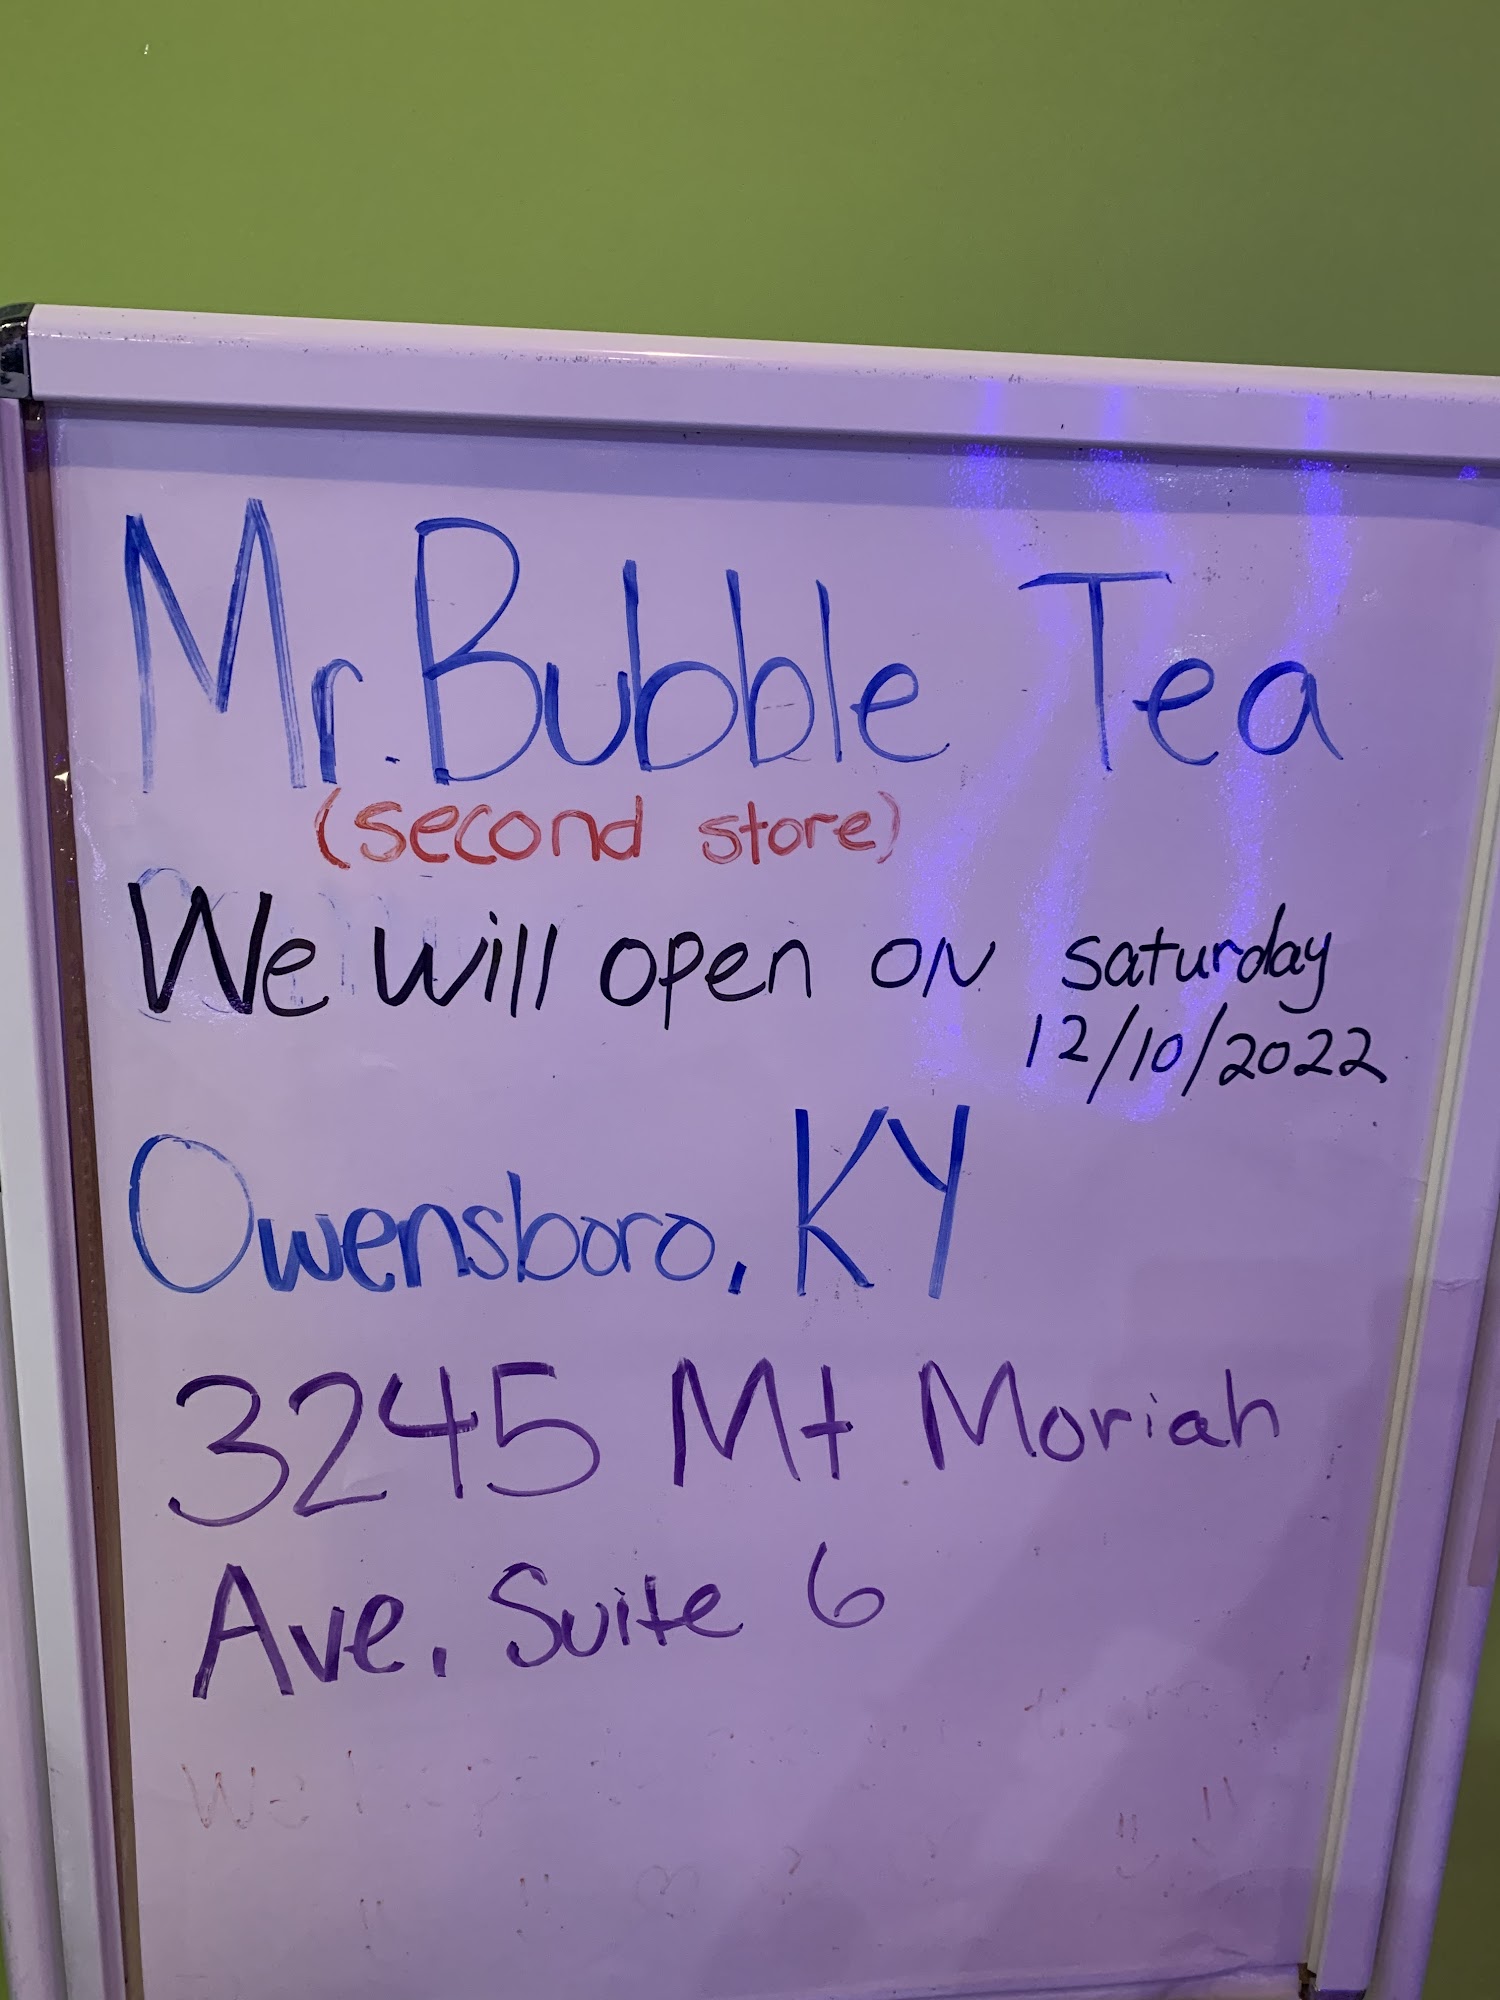 Mr. Bubble Tea
(second store)
We will open on saturday
12/10/2022
Owensboro, KY
3245 Mt Moriah
Ave, Suite 6
We